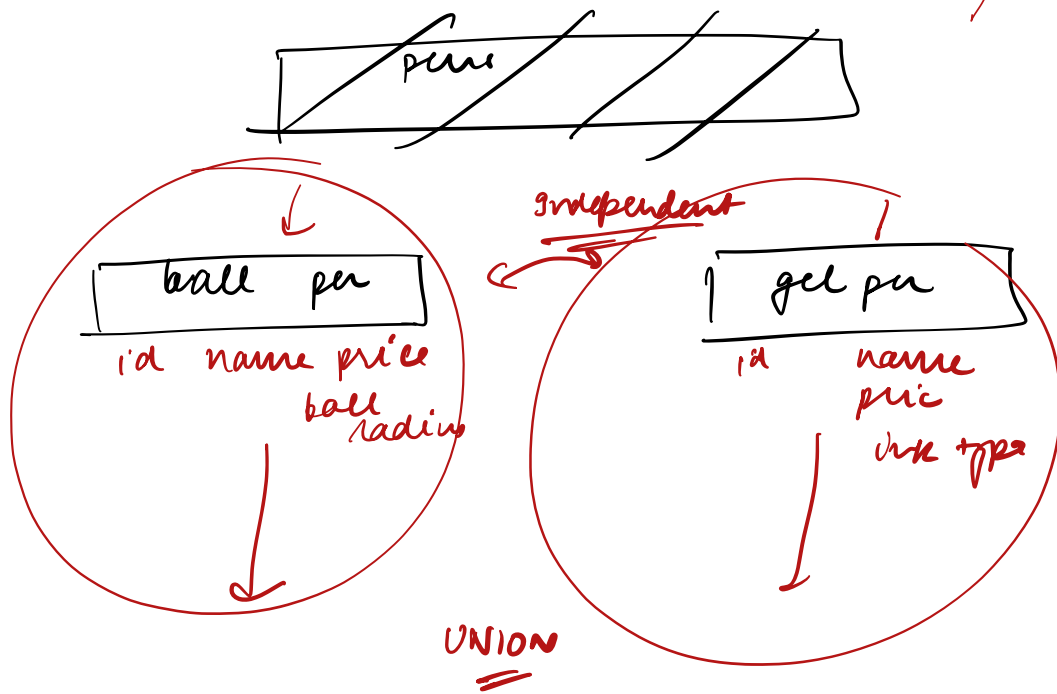 pens
Independent
ball pen
gel pen
id name price
ball
radius
id name
pric
ink type
UNION